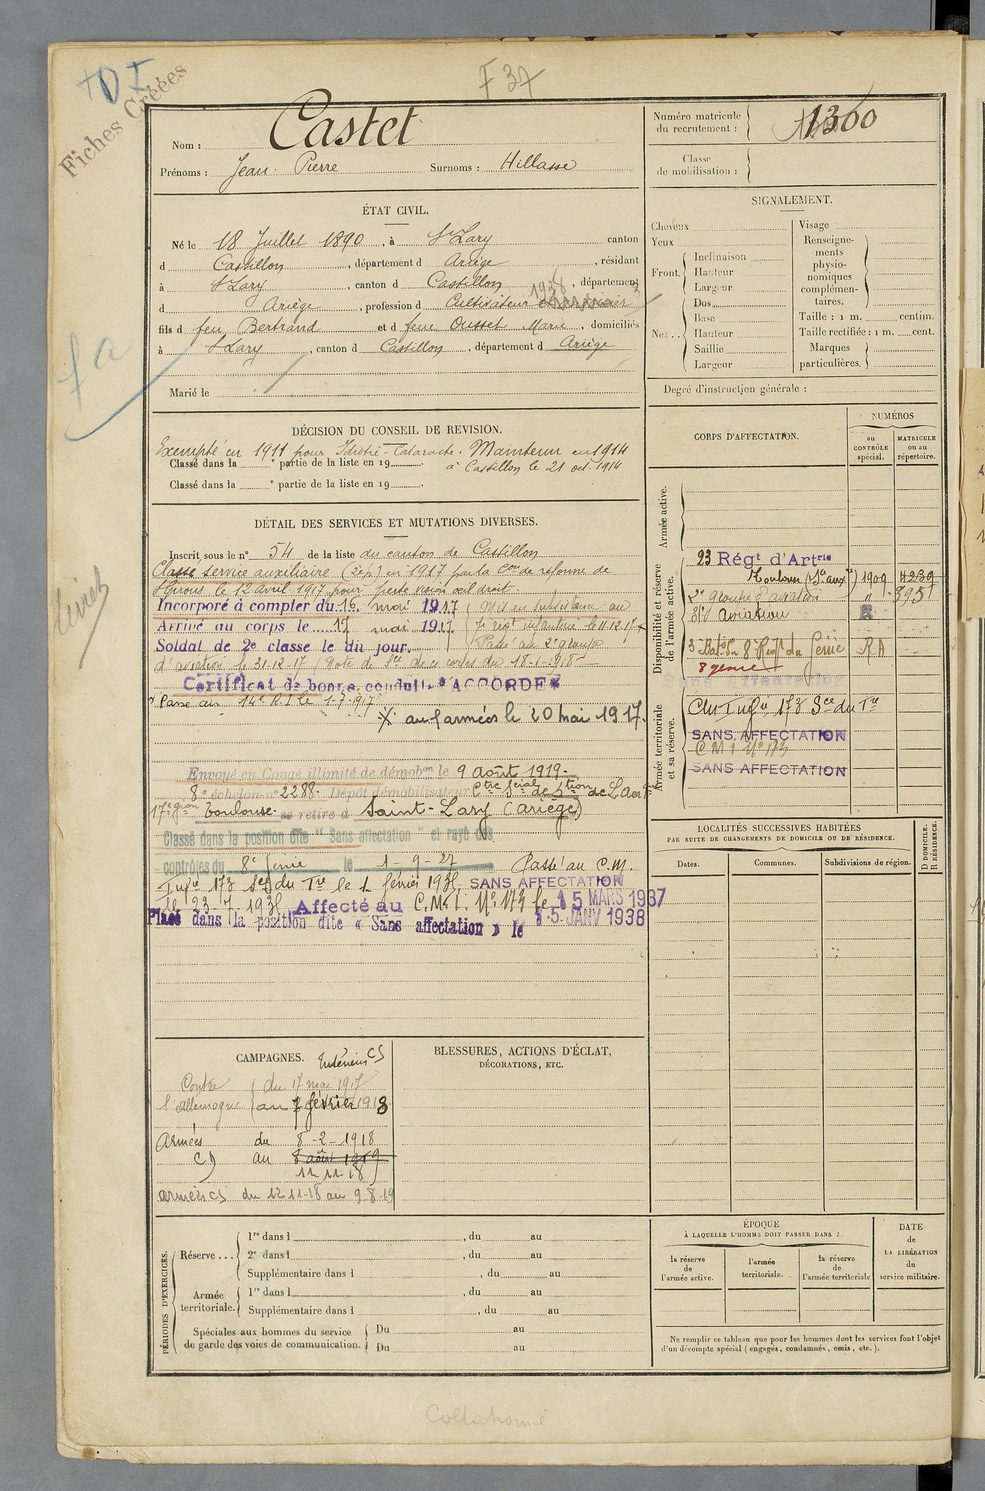 F 37
Fiches Créées
Nom : Castet
Prénoms : Jean Pierre Surnoms : Hillasse
Numéro matricule
du recrutement : 1300
Classe
de mobilisation :
ÉTAT CIVIL.
Né le 18 Juillet 1890, à St Lary canton
d Castillon, département d Ariège, résidant
à St Lary, canton d Castillon, département
d Ariège, profession d Cultivateur
fils d feu Bertrand et d feue Ousset Marie, domiciliés
à St Lary, canton d Castillon, département d Ariège
Marié le
SIGNALEMENT.
Cheveux
Yeux
Front.
Inclinaison
Hauteur
Largeur
Nez..
Dos
Base
Hauteur
Saillie
Largeur
Visage
Renseigne-
ments
physio-
nomiques
complémen-
taires.
Taille : 1 m. centim.
Taille rectifiée : 1 m. cent.
Marques
particulières.
Degré d'instruction générale :
DÉCISION DU CONSEIL DE REVISION.
Exempté en 1911 pour Cataracte. Maintenu en 1914
à Castillon le 21 oct. 1914
Classé dans la e partie de la liste en 19
Classé dans la e partie de la liste en 19
DÉTAIL DES SERVICES ET MUTATIONS DIVERSES.
Inscrit sous le n° 54 de la liste du canton de Castillon
Classé service auxiliaire en 1917 par la Con de réforme de
St Girons le 12 avril 1917 pour perte vision œil droit
Incorporé à compter du 16 mai 1917
Arrivé au corps le 17 mai 1917
Soldat de 2e classe le dit jour.
Mis en subsistance au
régt infanterie le 11.12.17
Passé au 2e groupe
d'aviation le 31-12-17 (Note de Sce de ce corps du 18-1-1918
Certificat de bonne conduite ACCORDÉ
Passé au 14e R.I. le 1-7-1917
aux armées le 20 mai 1917.
Envoyé en Congé illimité de démobon le 9 août 1919
8e échelon n° 2288. Dépôt démobilisateur
17e région Toulouse se retire à Saint-Lary (Ariège)
Classé dans la position dite "Sans affectation" et rayé des
contrôles du 8e Génie le 1-9-27 Passé au C.M.
Infie 173 Son du Tre le 1 février 193 SANS AFFECTATION
le 23.7.193 Affecté au C.M.I. N° 173 le 15 MARS 1937
Placé dans la position dite « Sans affectation » le 15 JANV 1938
CORPS D'AFFECTATION.
NUMÉROS
au
CONTRÔLE
spécial.
MATRICULE
ou au
répertoire.
Armée active.
Disponibilité et réserve
de l'armée active.
23 Régt d'Artrie
Toulouse (Sce auxre) 1909 4239
2e groupe d'aviation " 8951
Aviation
3 Baton 8e Régt du Génie RA
8 génie
Sans Affectation
Armée territoriale
et sa réserve.
CM Infie 173 Sce du Tre
SANS AFFECTATION
C M I N° 173
SANS AFFECTATION
LOCALITÉS SUCCESSIVES HABITÉES
PAR SUITE DE CHANGEMENTS DE DOMICILE OU DE RÉSIDENCE.
Dates.
Communes.
Subdivisions de région.
D DOMICILE.
R RÉSIDENCE.
CAMPAGNES.
Intérieur CS
Contre du 17 mai 1917
l'Allemagne au 7 février 1918
Armées du 8-2-1918
CD au 8 août 1919
11 11-18
armées CS du 12 11-18 au 9-8-19
BLESSURES, ACTIONS D'ÉCLAT,
DÉCORATIONS, ETC.
PÉRIODES D'EXERCICES.
Réserve...
1re dans l , du au
2e dans l , du au
Supplémentaire dans l , du au
Armée
territoriale.
1re dans l , du au
Supplémentaire dans l , du au
Spéciales aux hommes du service
de garde des voies de communication.
Du au
Du au
ÉPOQUE
À LAQUELLE L'HOMME DOIT PASSER DANS :
la réserve
de
l'armée active.
l'armée
territoriale.
la réserve
de
l'armée territoriale
DATE
de
LA LIBÉRATION
du
service militaire.
Ne remplir ce tableau que pour les hommes dont les services font l'objet
d'un décompte spécial (engagés, condamnés, omis, etc.).
Collationné